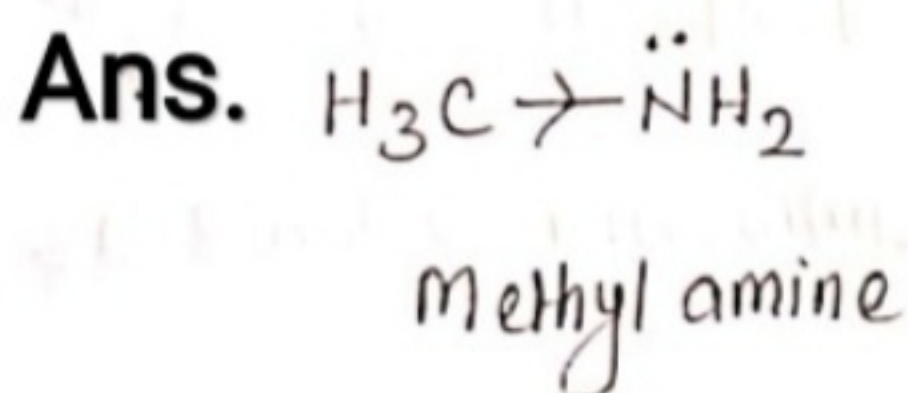 Ans. H₃C→N̈H₂
Methyl amine